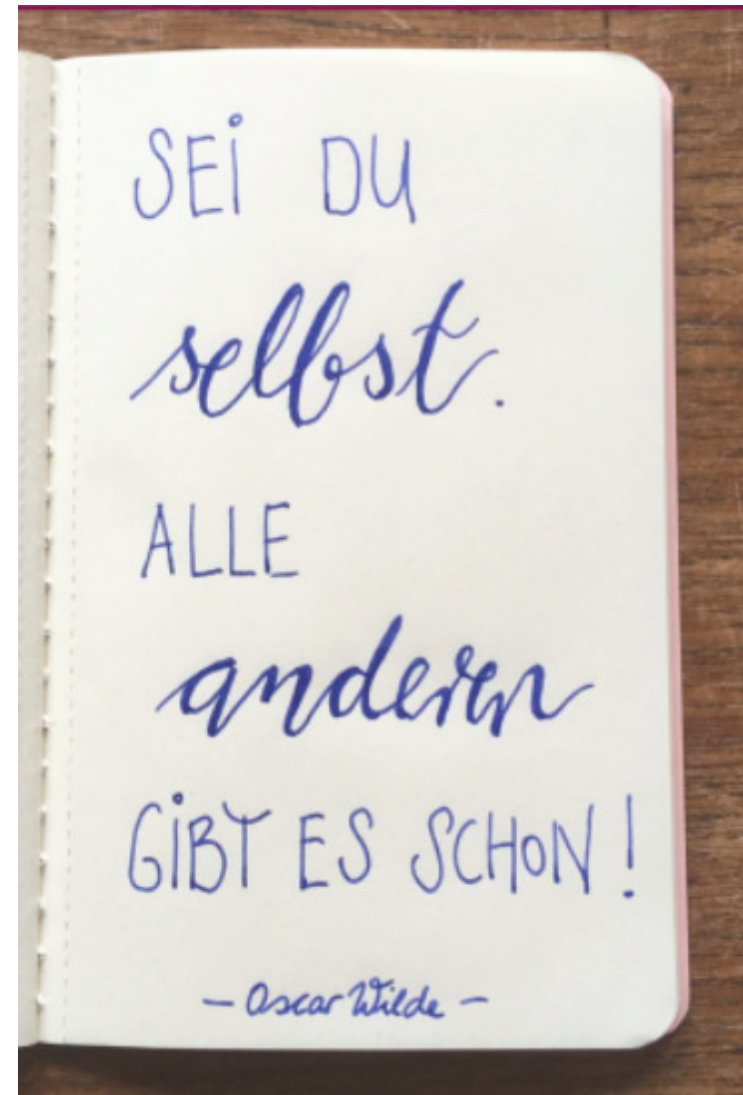 SEI DU
selbst.
ALLE
anderen
GIBT ES SCHON!
– Oscar Wilde –